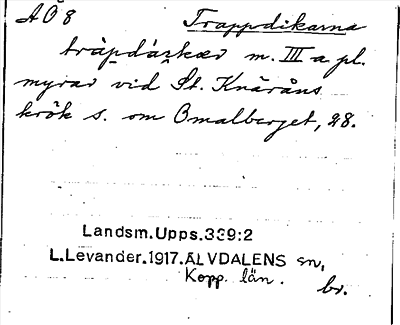 AÖ 8 Trappdikarna
tràpdàskær m. III a pl.
myrar vid St. Knäråns
krök s. om Omalberget, 28.
Landsm.Upps.339:2
L.Levander.1917.ÄLVDALENS sn,
Kopp. län.
br.